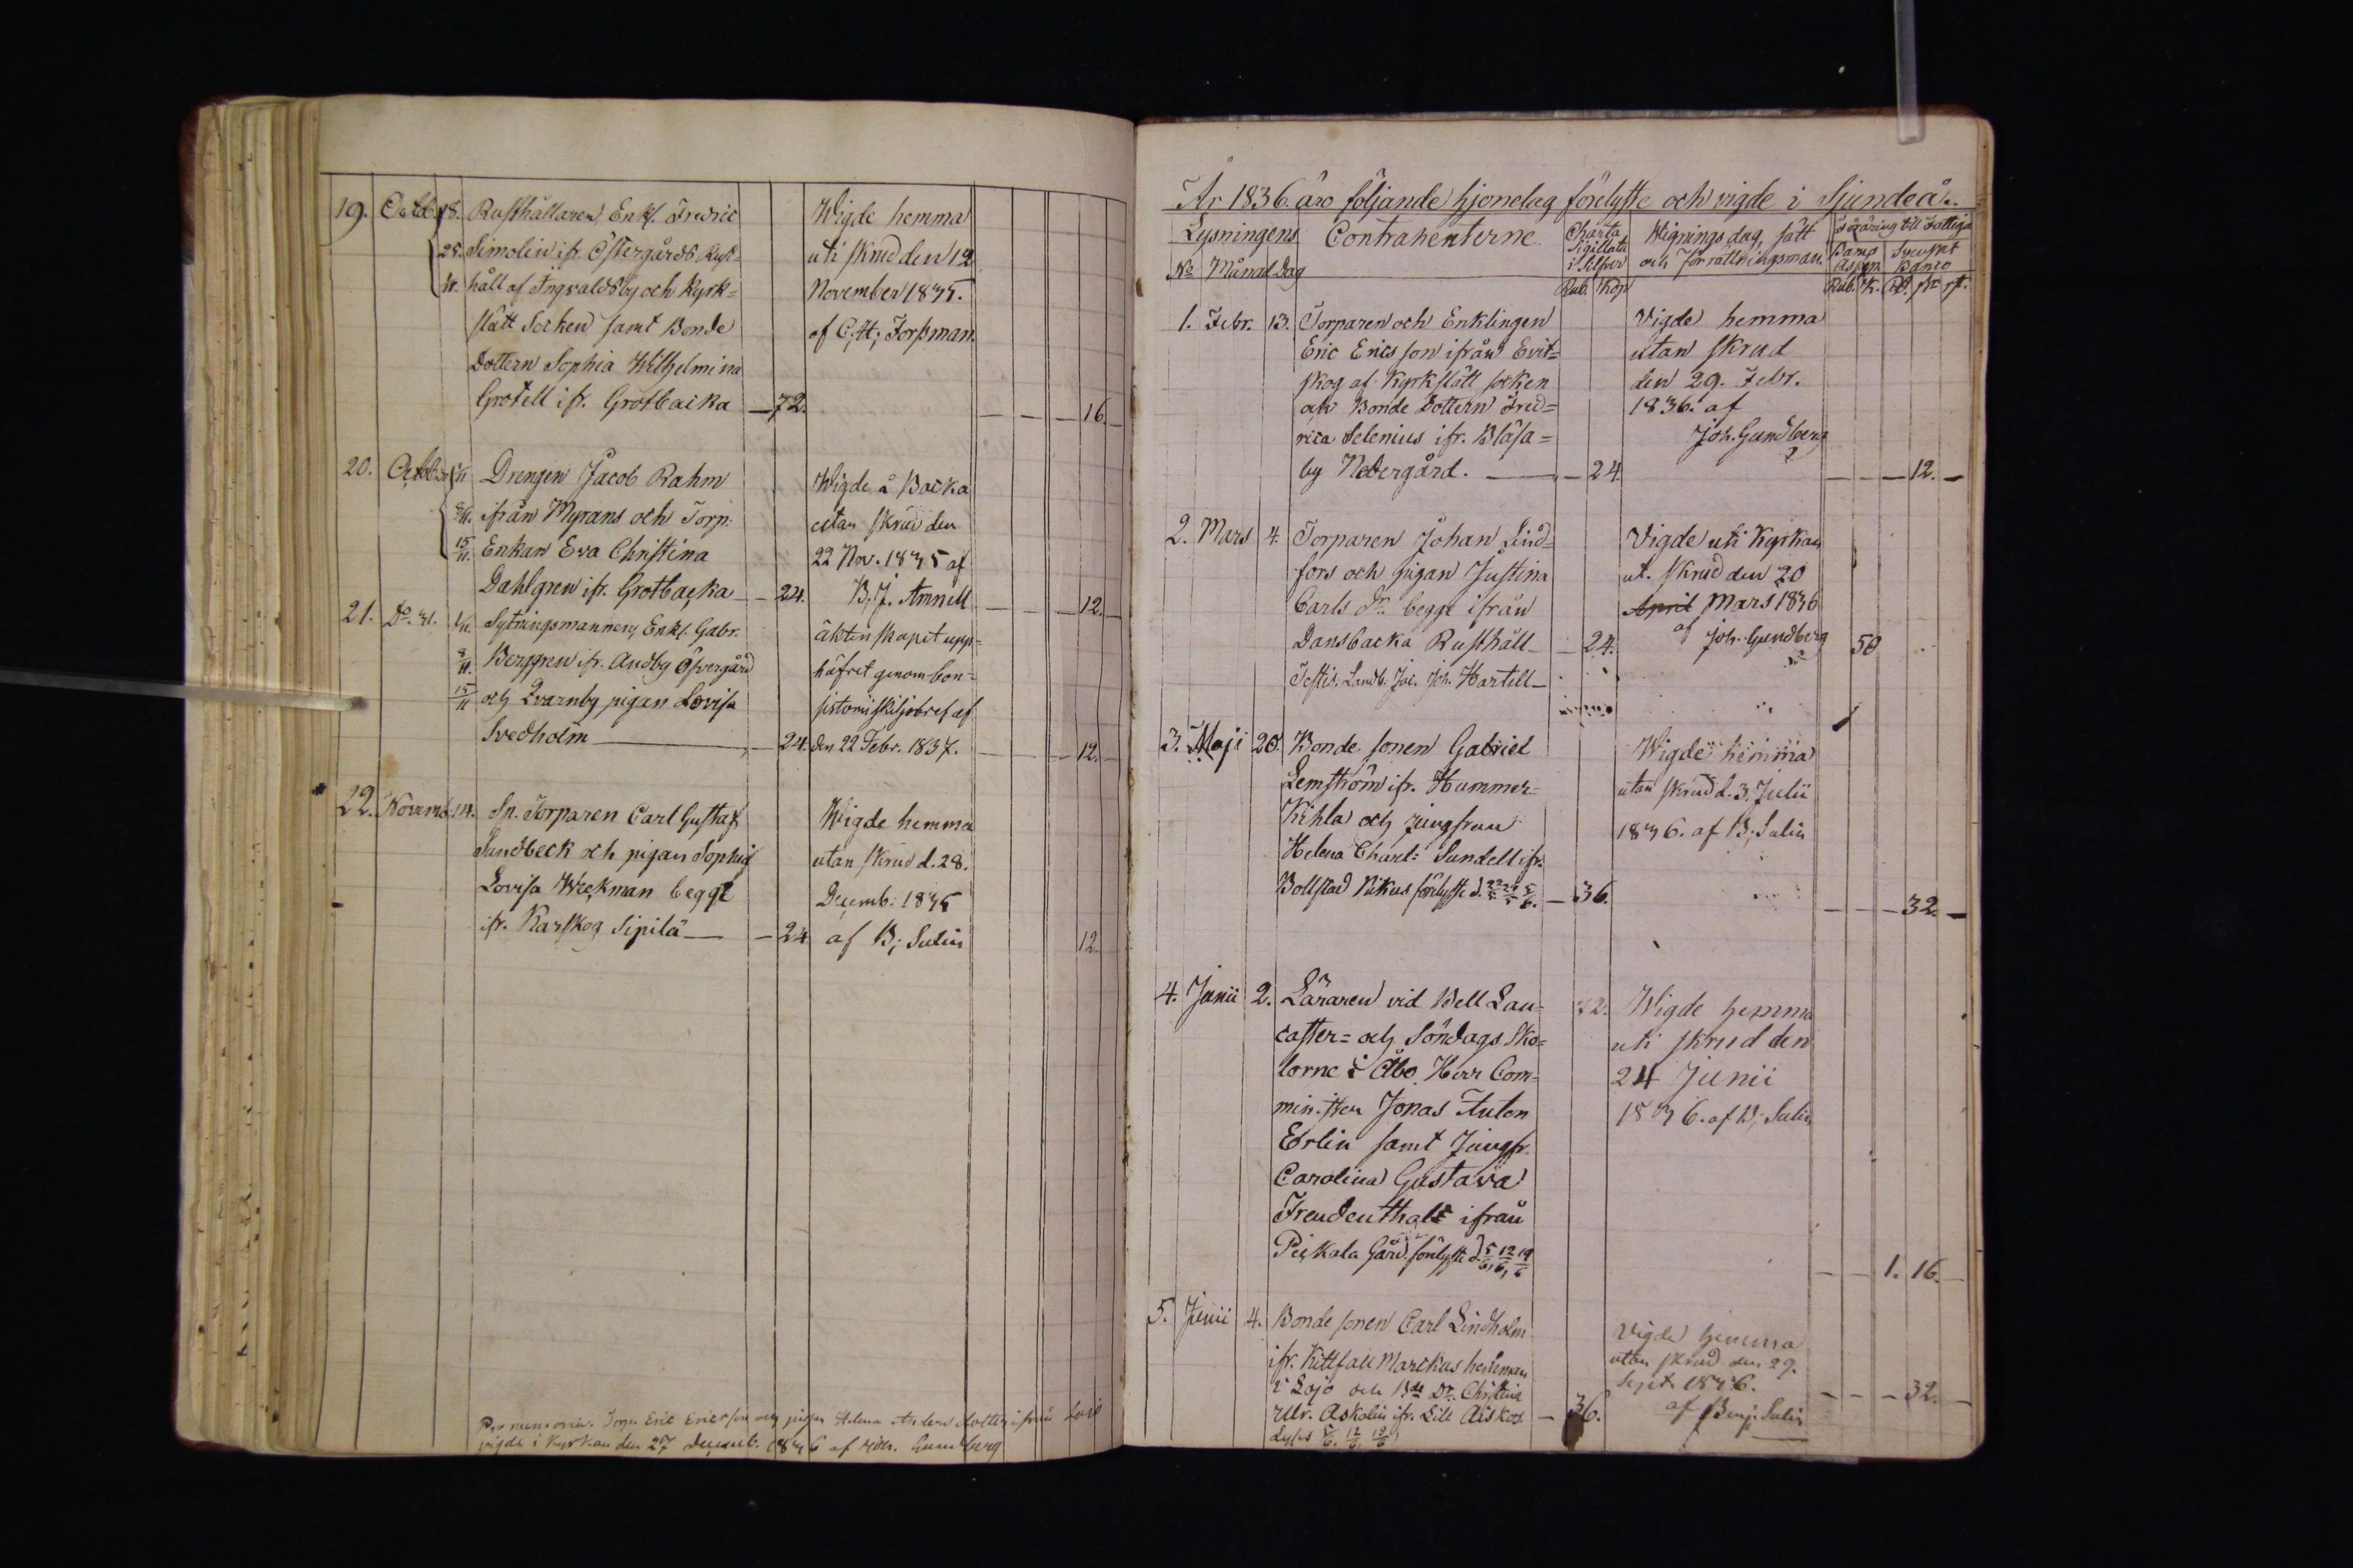 19. Octob. 18. Rusthållaren Enkl. Fredric Wigde hemma
25. Simolin ifr. Östergårds Rust- uti skrud den 12
håll af Ingvaldsby och Kyrk= November 1835.
slätt Socken samt Bonde af C. H. Forssman.
Dottern Sophia Wilhelmina
Grotell ifr. Grotbacka — 72. — — — 16. —
20. Octob. 1/11 Drengen Jacob Rahm Wigde å Backa
8/11. ifrån Myrans och Torp. utan skrud den
15/11. Enkan Eva Christina 22 Nov. 1835 af
Dahlgren ifr. Grotbacka — 24. B. J. Amnell — — — 12. —
21. Do. 31. 1/11. Sytningsmannen, Enkl. Gabr. äktenskapet upp=
8/11. Berggren ifr. Andby Öfvergård häfvet genom Con=
15/11 och Qvarnby pigan Lovisa sistorii skiljobref af
Svedholm — 24. den 22 Febr. 1837. — — — 12. —
22. Novemb. 14. Sn. Torparen Carl Gustaf Wigde hemma
Sundbeck och pigan Sophia utan skrud d. 28.
Lovisa Weckman begge Decemb: 1835
ifr. Karskog Sipilä — 24 af B; Salin 12.
Pro memoria. Torp. Eric Ericsson och pigan Helena Anders dotter ifrån Lojo
vigde i Kyrkan den 27 Decemb. 1836 af Joh. Gundberg
År 1836. äro följande hjonelag förelyste och vigde i Sjundeå.
Lysningens Contrahenterne. Charta Sigillata i Silfver Wignings dag, sätt och Förrättningsman.
No Månad Dag Rub. Kop Banco
Rub. K. Rd. sk. rst.
1. Febr. 13. Torparen och Enklingen Vigde hemma
Eric Ericsson ifrån Evit= utan skrud
skog af Kyrkslätt socken den 29. Febr.
och Bonde Dottern Fred= 1836. af
rica Selenius ifr. Blåsa= Joh. Gundberg
by Nedergård. — 24 — — — 12. —
2. Mars 4. Torparen Johan Lind= Vigde uti Kyrkan
fors och pigan Justina ut. skrud den 20
Carls Dr. begge ifrån April Mars 1836
Dansbacka Rusthåll — 24. af Joh. Gundberg 50
Testis. Landb. Joh. Hartell —
3. Maji 20. Bonde sonen Gabriel Wigde hemma
Lemström ifr. Hummer= utan skrud d. 3. Julii
Kihla och jungfrun 1836. af B; Salin
Helena Charl: Sundell ifr.
Bollstad Pikus förelyste d. 22/5 29/5 5/6. — 36. — — — 32. —
4. Junii 2. Läraren vid Bell Lan= 72. Wigde hemma
caster= och Söndags Sko= uti skrud den
lorne i Åbo. Herr Com= 24 Junii
minister Jonas Anton 1836. af B; Salin
Edrlin samt Jungfr.
Carolina Gustava
Freudenthal ifrån
Pickala Gård förelyste d. 5/6, 12/6, 19/6 — — 1. 16. —
5. Junii 4. Bonde sonen Carl Lindholm Vigde hemma
ifr. Kittfall Marckus hemman utan skrud den 29.
i Lojo och Bde Dr. Christina Sept. 1836.
Ulr. Askolin ifr. Lill Aiskos — 36. af Benj. Salin — — — 32. —
Lystes 5/6. 12/6. 19/6